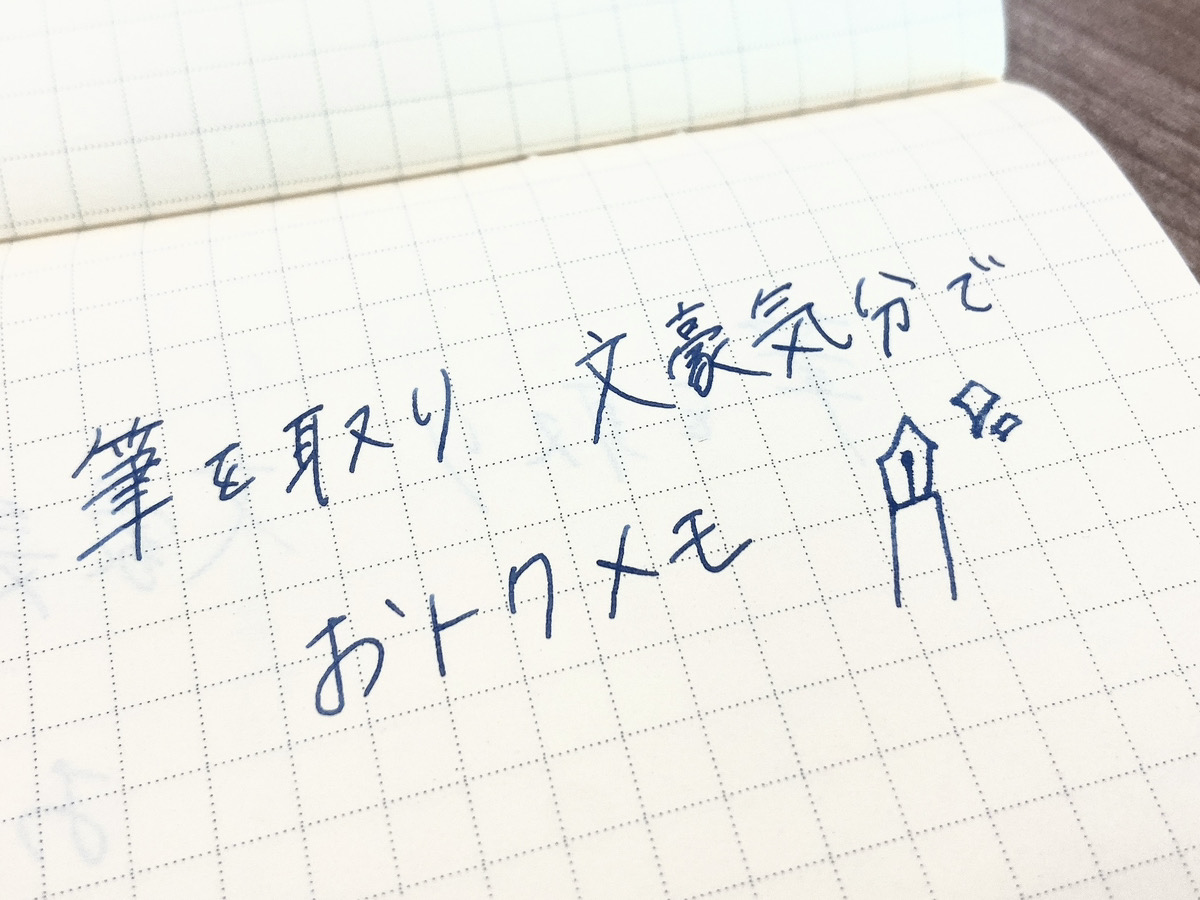 筆を取り 文豪気分で
おトクメモ